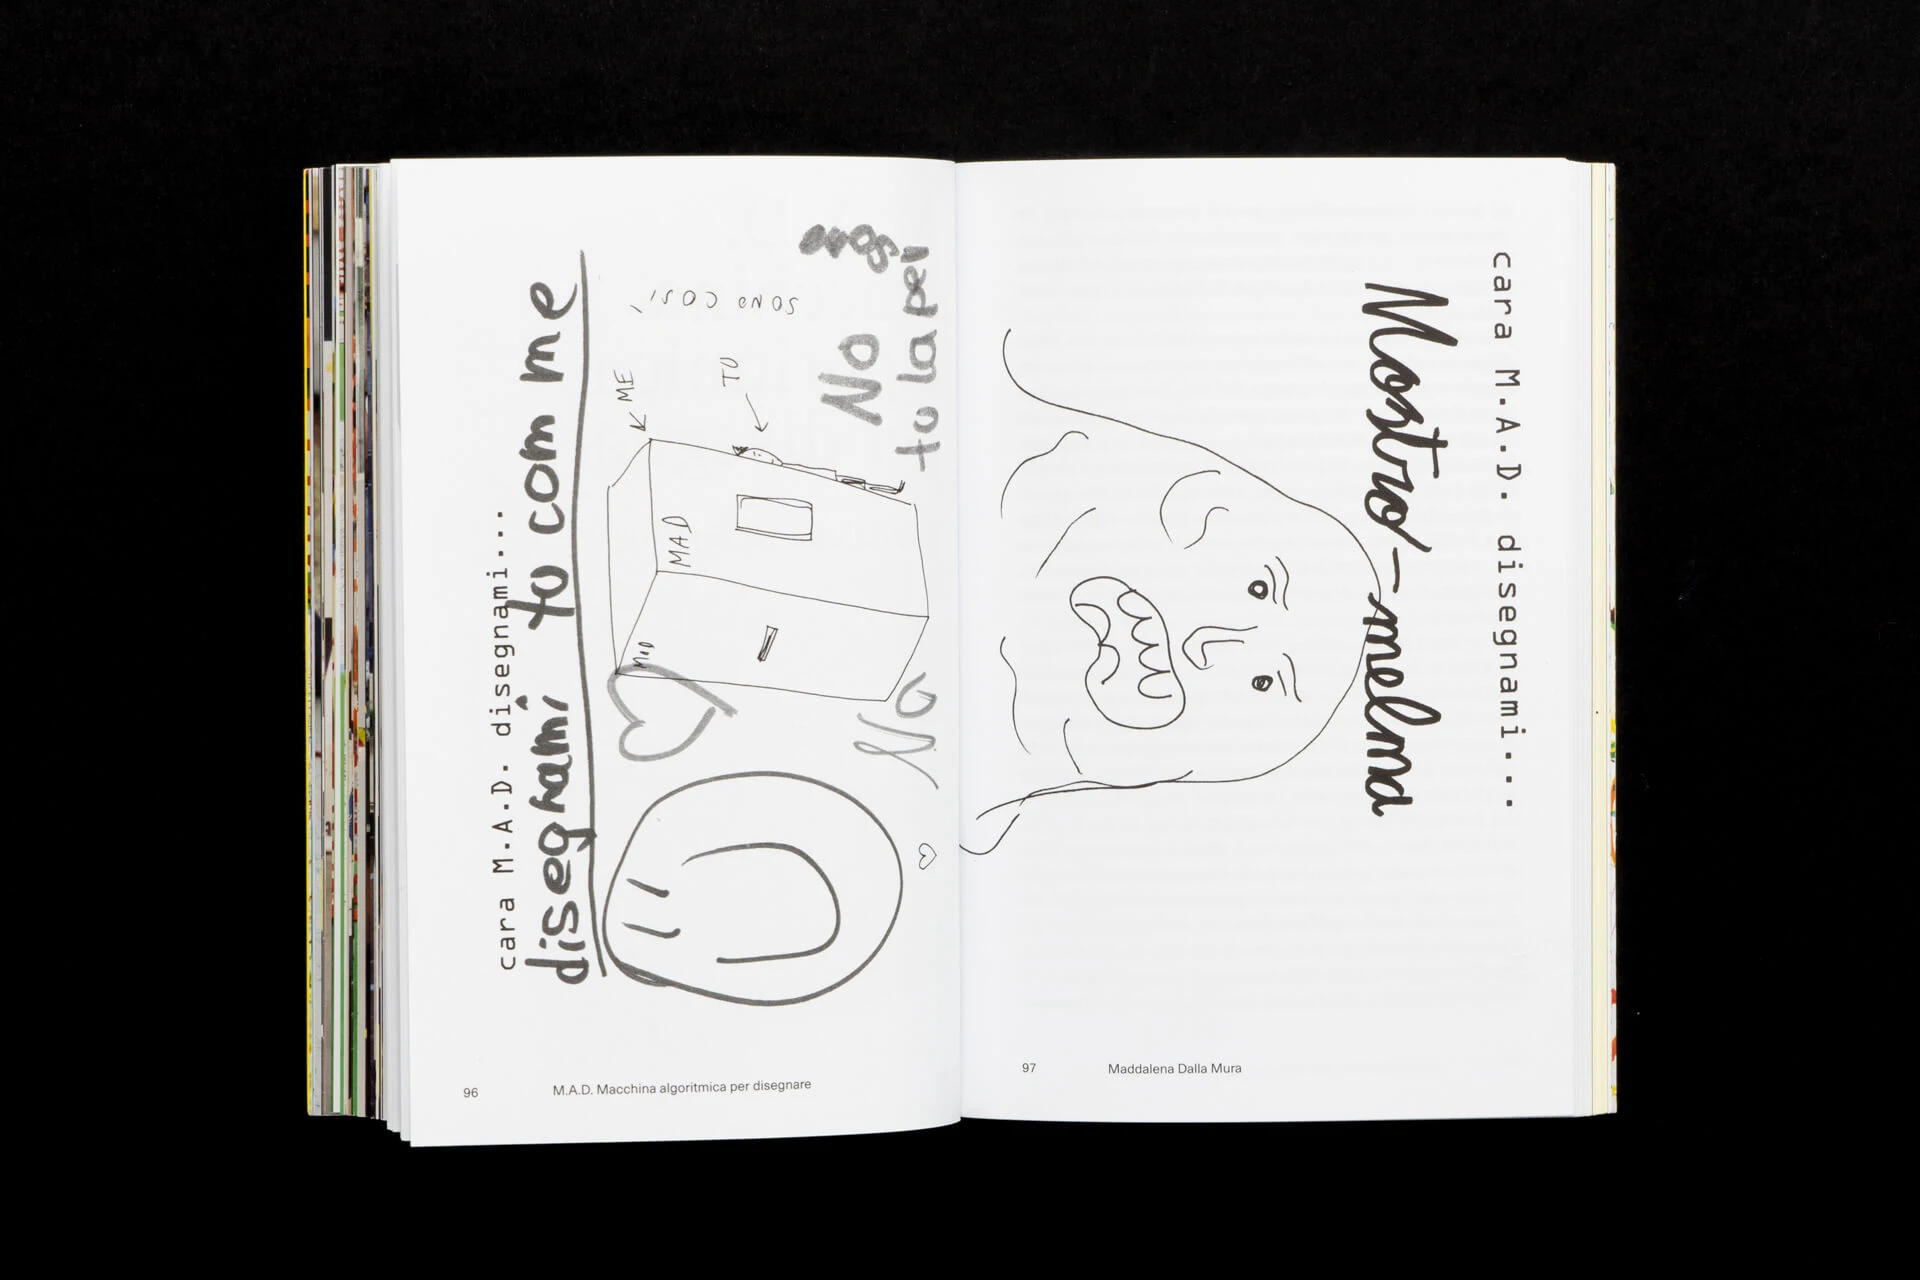 cara M.A.D. disegnami...
disegnami tu com me
SONO COSI'
ME
TU
MAD
MAD
No
tu la per
No
96
M.A.D. Macchina algoritmica per disegnare
cara M.A.D. disegnami...
Mostro-melma
97
Maddalena Dalla Mura